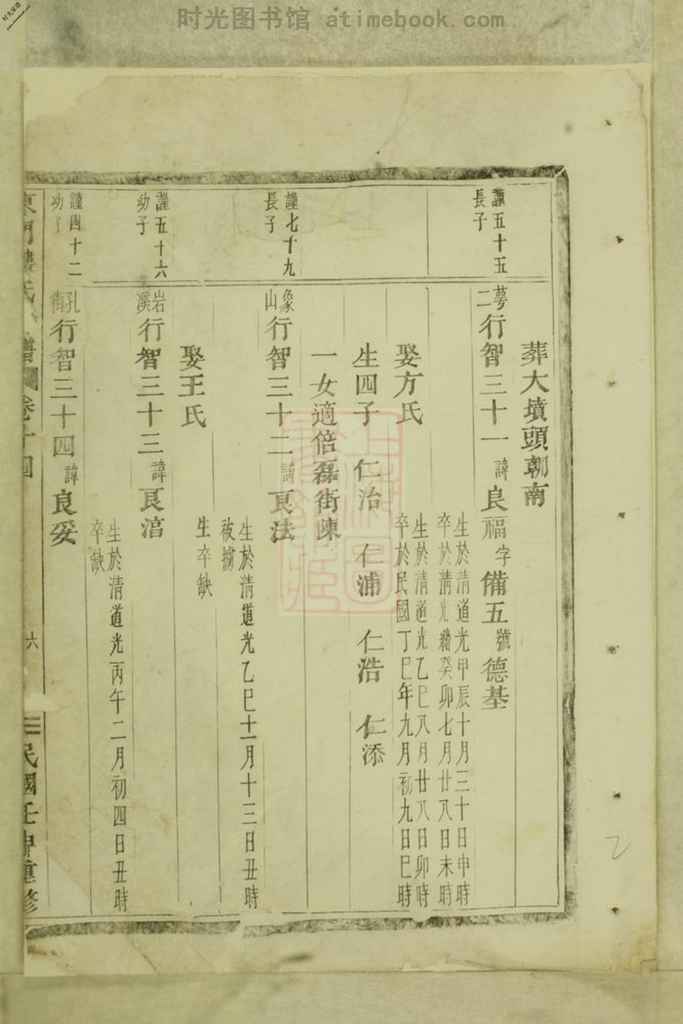 时光图书馆 atimebook.com
葬大墳頭朝南
謹五十五
長子
蕚二行智三十一諱良福字備五號德基
生於清道光甲辰十月三十日申時
卒於清光緒癸卯七月廿八日未時
娶方氏
生於清道光乙巳八月廿八日卯時
卒於民國丁巳年九月初九日巳時
生四子 仁治 仁浦 仁浩 仁添
一女適倍磊街陳
謹七十九
長子
象山行智三十二諱良法
生於清道光乙巳十一月十三日丑時
被擄
娶王氏
生卒缺
謹五十六
幼子
岩溪行智三十三諱良湇
生於清道光丙午二月初四日丑時
卒缺
謹四十二
幼子
孔衛行智三十四諱良妥
卷十四
六
民國壬申重修